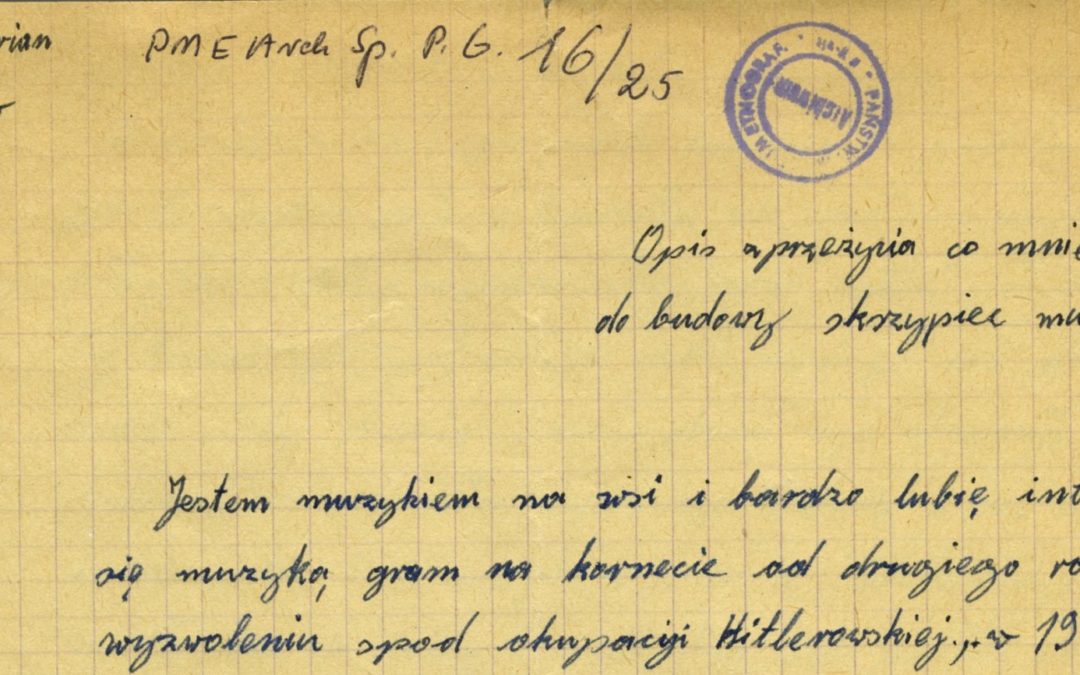 rian
PME Arch Sp. P. G. 16/25
PAŃSTW.
M ETNOGRAF.
ARCHIWUM
Opis z przeżycia co mnie
do budowy skrzypiec mu
Jestem muzykiem na wsi i bardzo lubię int
się muzyką gram na kornecie od drugiego ro
wyzwoleniu spod okupacji Hitlerowskiej., w 19